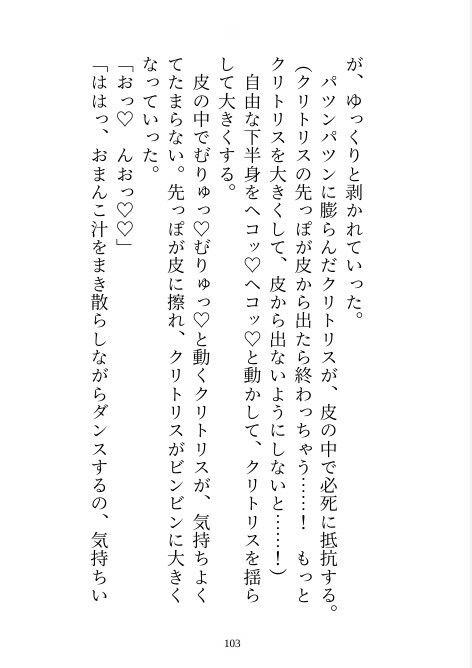 が、ゆっくりと剥かれていった。
パツンパツンに膨らんだクリトリスが、皮の中で必死に抵抗する。
(クリトリスの先っぽが皮から出たら終わっちゃう……！　もっと
クリトリスを大きくして、皮から出ないようにしないと……！)
自由な下半身をヘコッ♡ヘコッ♡と動かして、クリトリスを揺ら
して大きくする。
皮の中でむりゅっ♡むりゅっ♡と動くクリトリスが、気持ちよく
てたまらない。先っぽが皮に擦れ、クリトリスがビンビンに大きく
なっていった。
「おっ♡　んおっ♡♡」
「ははっ、おまんこ汁をまき散らしながらダンスするの、気持ちい
103